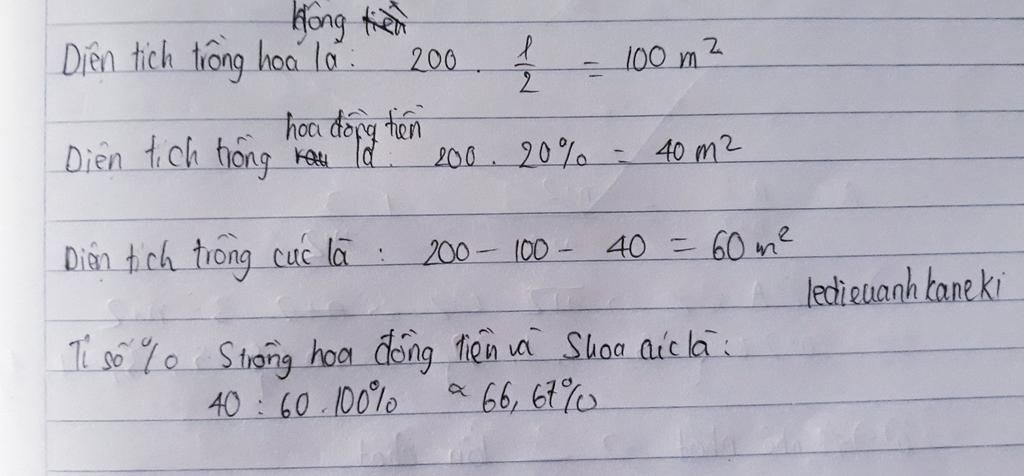 Hồng
Diện tích trồng hoa là: 200 . 1/2 = 100 m²
hoa đồng tiền
Diện tích trồng là: 200 . 20% = 40 m²
Diện tích trồng cúc là : 200 - 100 - 40 = 60 m²
ledieuanhkaneki
Tỉ số % S trồng hoa đồng tiền và S hoa cúc là :
40 : 60 . 100% ≈ 66,67%